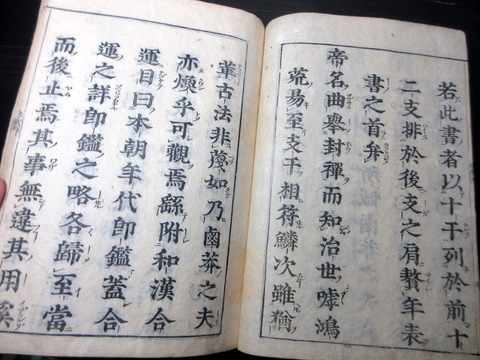 若此書者以十干列於前十
二支排於後支之肩贅年表
書之首弁
帝名曲舉封禪而知治世噱鴻
荒易至支干相符鱗次雖猶
革古法非蔑如乃鹵莽之夫
亦煥乎可觀焉繇附和漢合
運目曰本朝年代即鑑蓋合
運之詳即鑑之略各歸至當
而後止焉其事無違其用奚